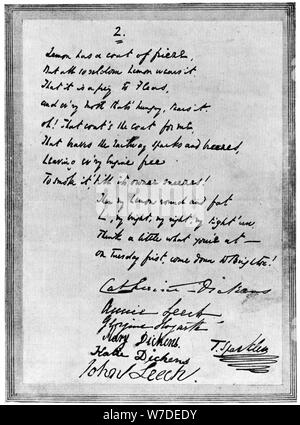 2.
Lemon has a coat of frieze,
But all so seldom Lemon wears it
That it is a prey to Fleas,
and ev'ry moth that's hungry, tears it.
oh! that coat's the coat for me,
That braves the railway sparks and breezes,
Leaving ev'ry engine free
To smoke it, till its owner sneezes!
Then my Lemon round and fat
L., my bright, my right, my tight 'un,
Think a little what you're at —
on Tuesday first, come down to Brighton!
Catherine Dickens
Annie Leech
Georgina Hogarth
Mary Dickens
Katie Dickens
T. Sparkler
John Leech.
alamy
alamy
Image ID: W7DEDY
www.alamy.com